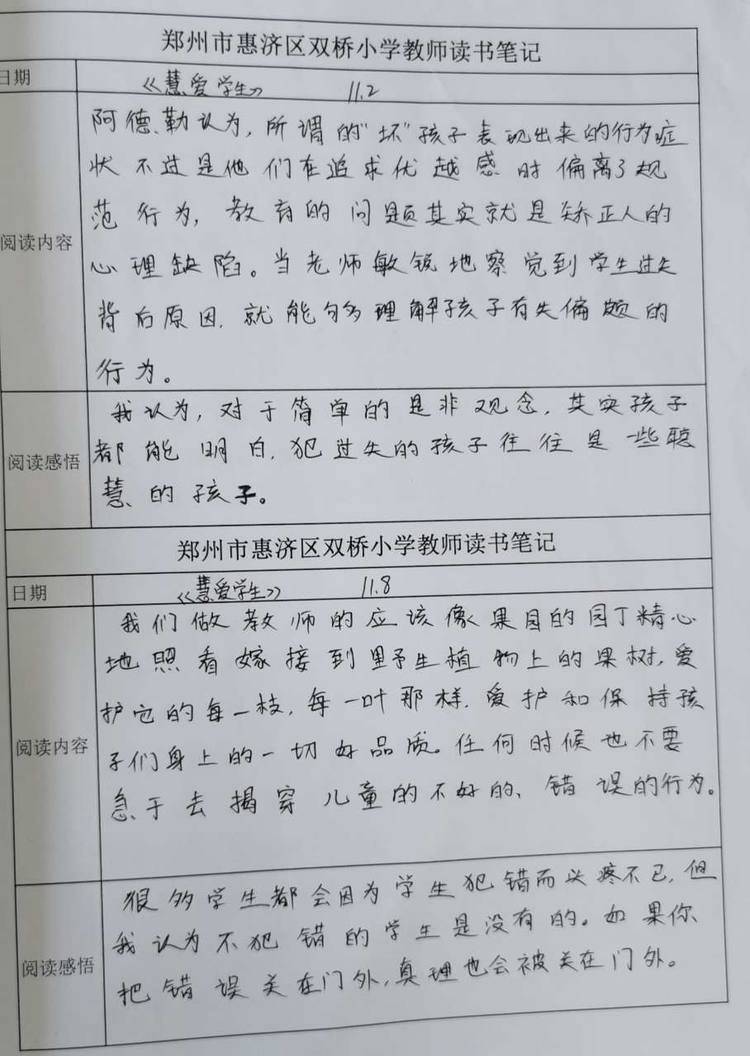 郑州市惠济区双桥小学教师读书笔记
日期 《慧爱学生》 11.2
阿德勒认为,所谓的"坏"孩子表现出来的行为症
状不过是他们在追求优越感时偏离了规
范行为,教育的问题其实就是矫正人的
阅读内容
心理缺陷。当老师敏锐地察觉到学生过失
背后原因,就能够多理解孩子有失偏颇的
行为。
我认为,对于简单的是非观念,其实孩子
阅读感悟 都能明白,犯过失的孩子往往是一些聪
慧的孩子。
郑州市惠济区双桥小学教师读书笔记
日期 《慧爱学生》 11.8
我们做教师的应该像果园的园丁精心
地照看嫁接到野生植物上的果树,爱
护它的每一枝,每一叶那样,爱护和保持孩
阅读内容 子们身上的一切好品质。任何时候也不要
急于去揭穿儿童的不好的、错误的行为。
很多学生都会因为学生犯错而头疼不已,但
阅读感悟 我认为不犯错的学生是没有的。如果你
把错误关在门外,真理也会被关在门外。